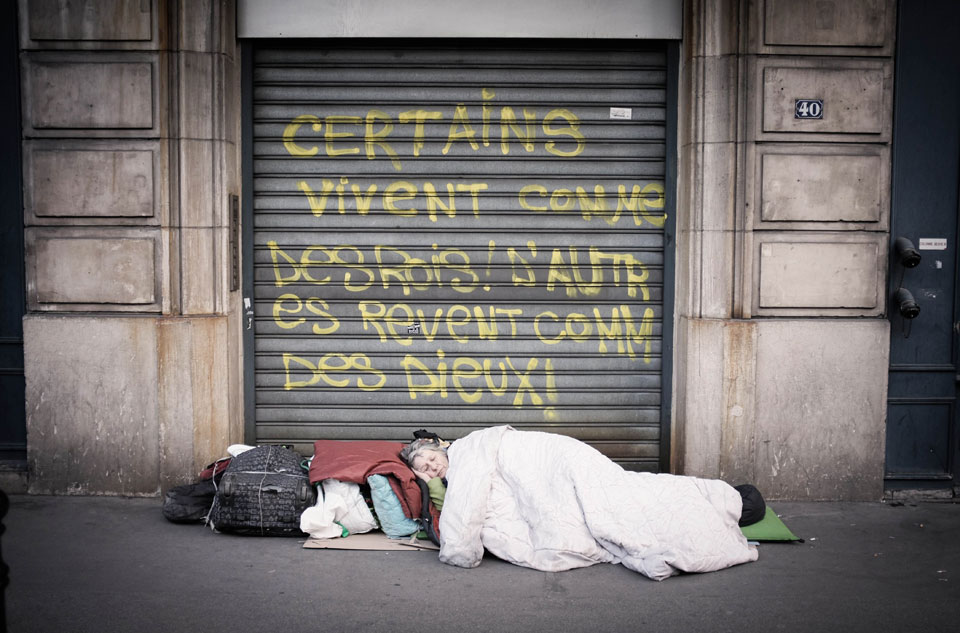 40
CERTAINS
vivent comme
Des Rois! D'AUTR
es Revent comm
Des Dieux!